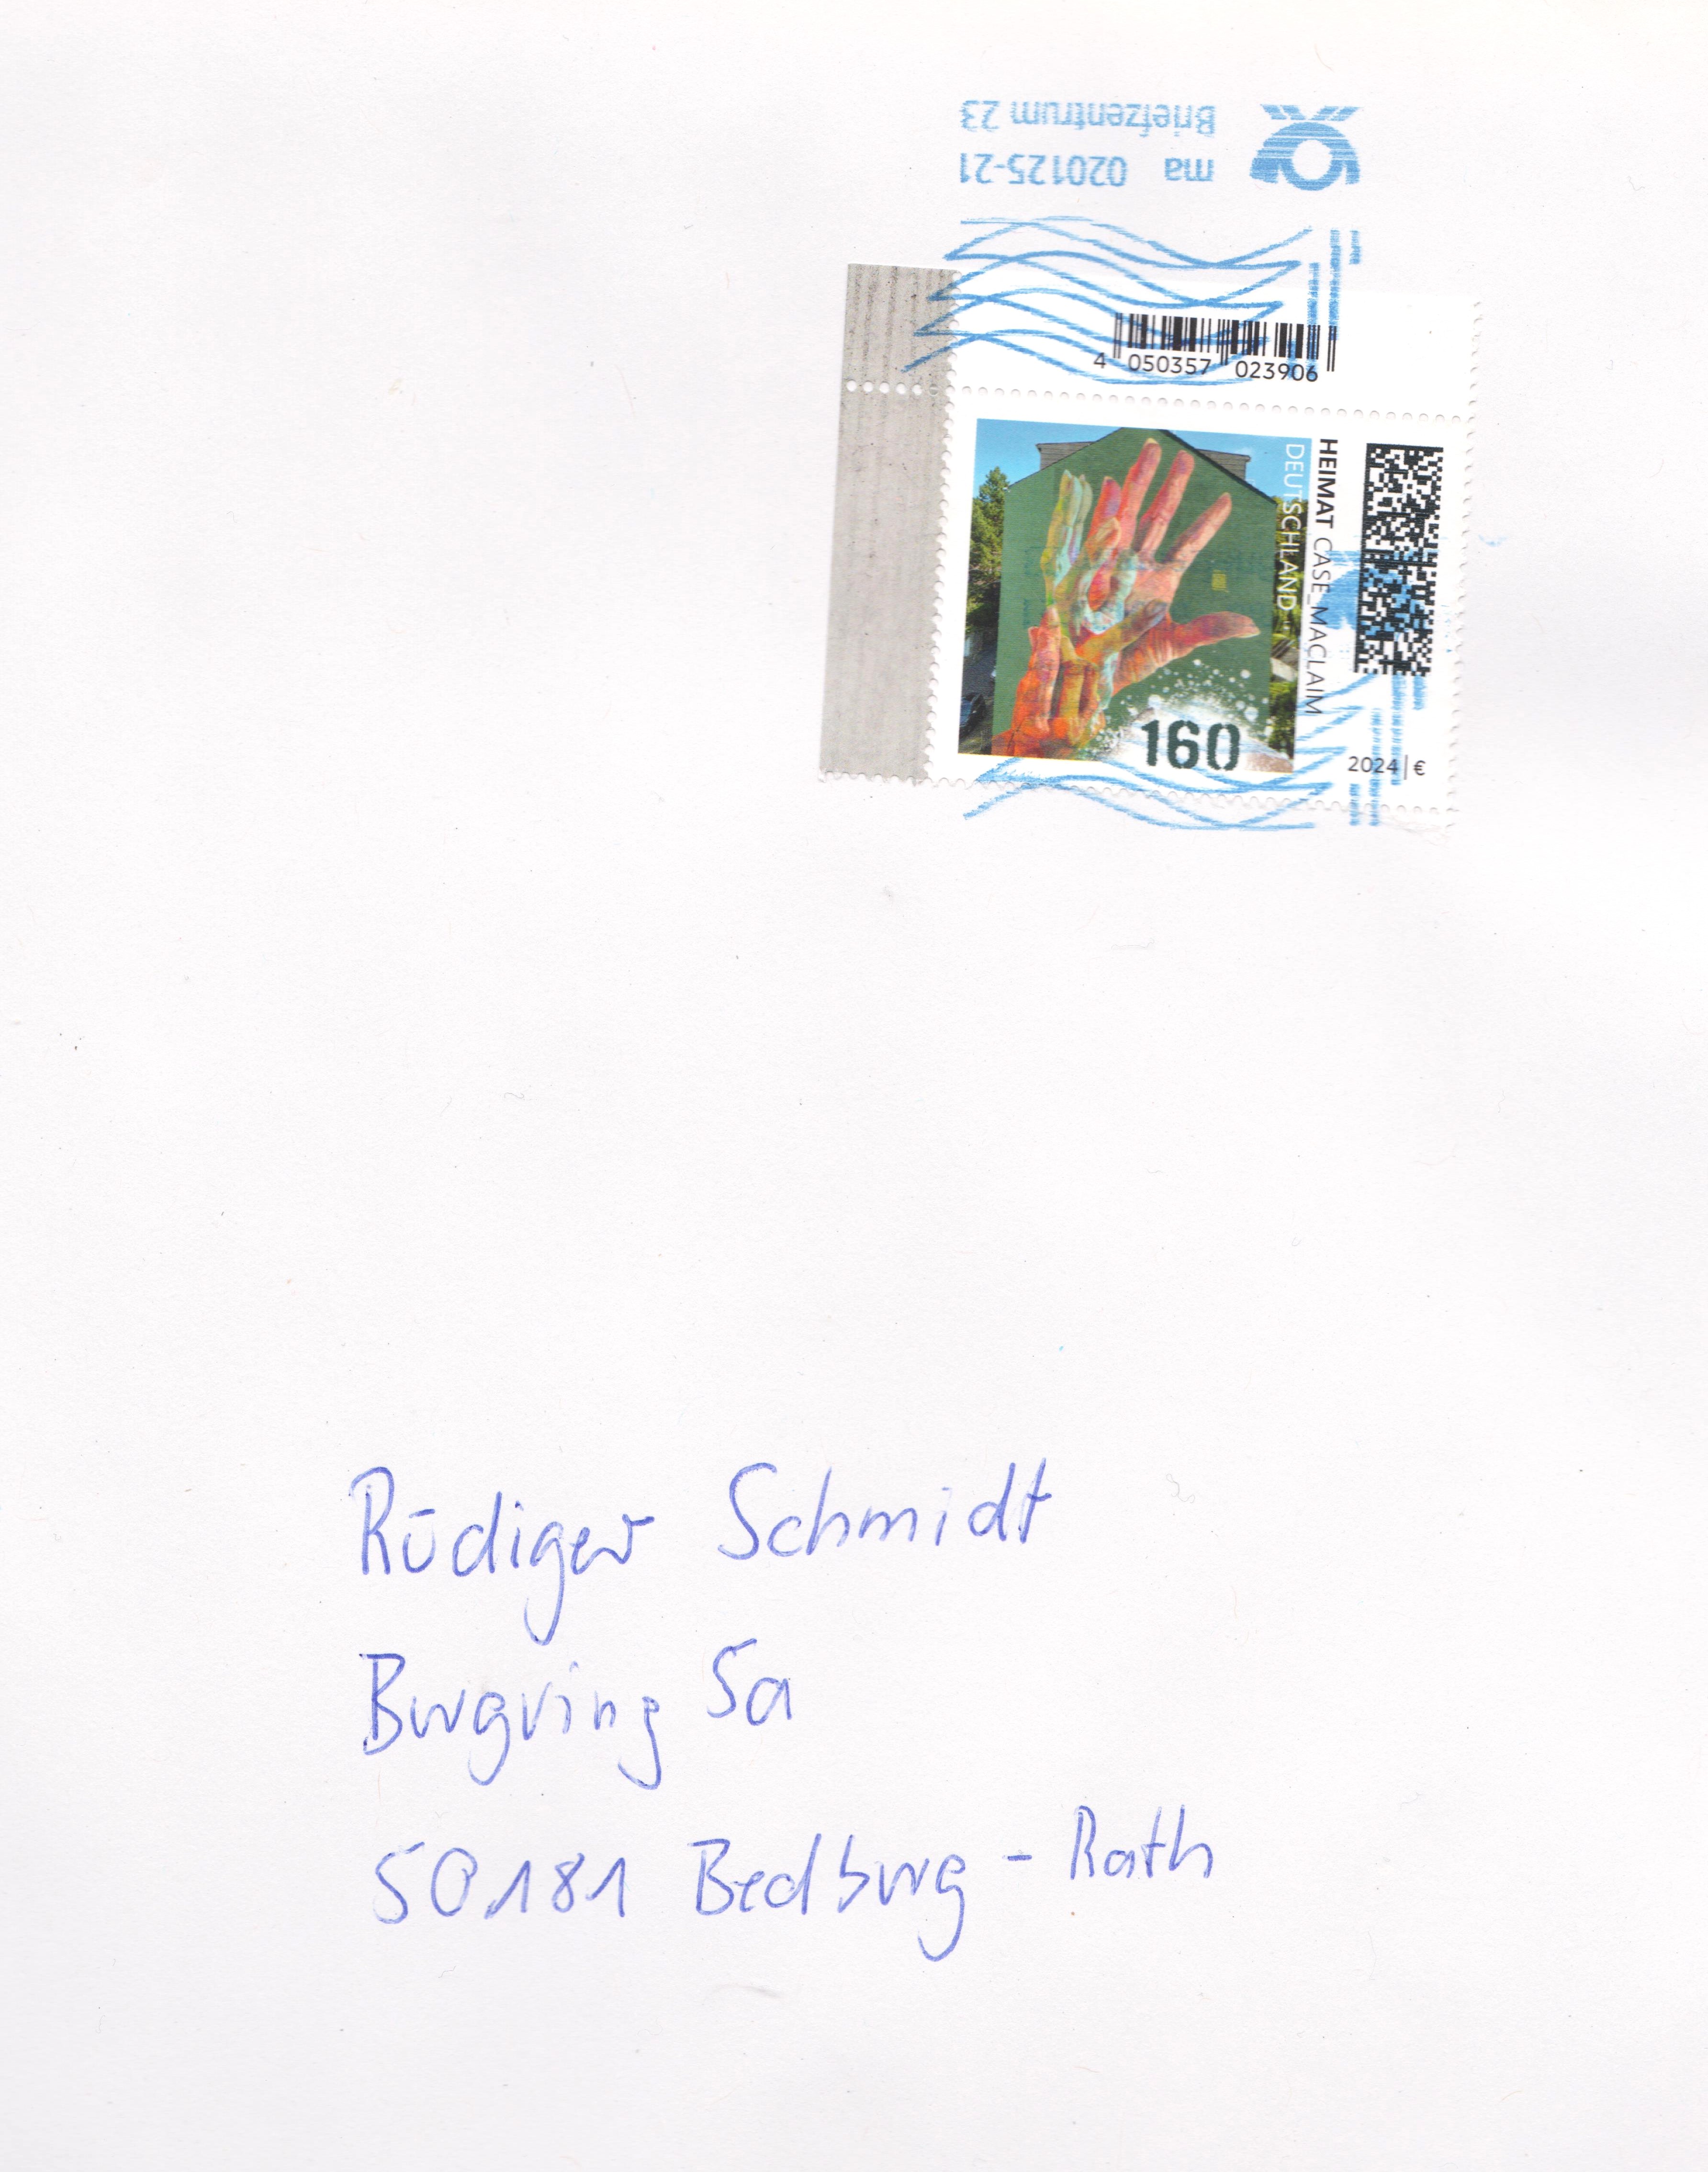 Briefzentrum 23
ma 020125-21
4 050357 023906
HEIMAT CASE_MACLAIM
DEUTSCHLAND
160
2024 | €
Rüdiger Schmidt
Burgring 5a
50181 Bedburg - Rath